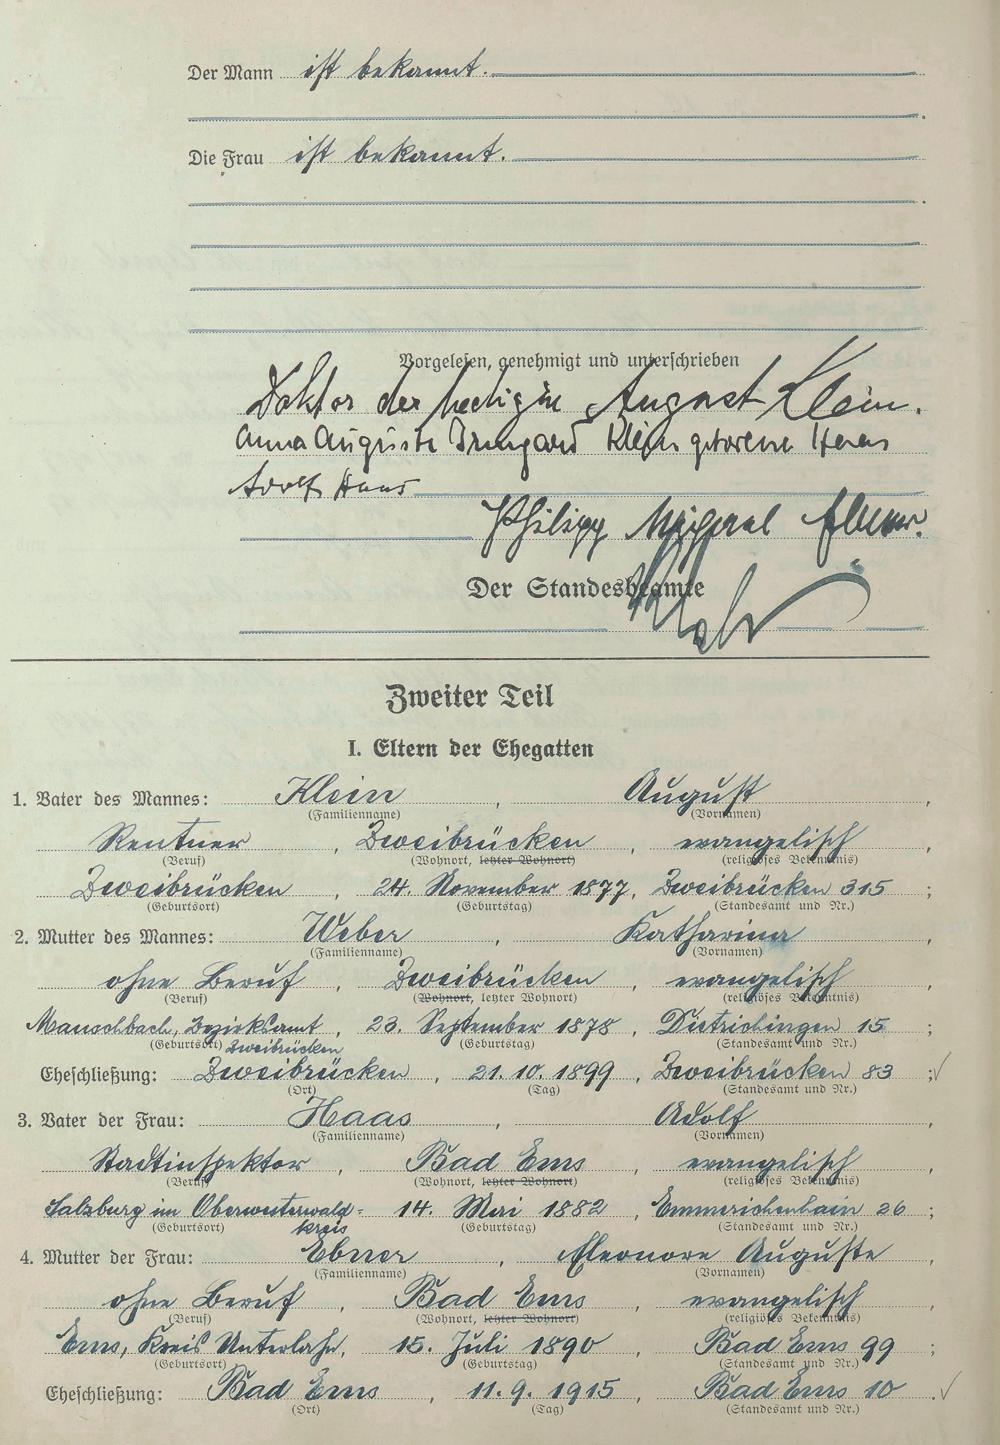 Der Mann ist bekannt.
Die Frau ist bekannt.
Vorgelesen, genehmigt und unterschrieben
Doktor der Medizin August Klein.
Anna Auguste Irmgard Klein geborene Haas
Adolf Haas
Philipp Michael Ebner.
Der Standesbeamte
Zweiter Teil
I. Eltern der Ehegatten
1. Vater des Mannes: Klein, August,
(Familienname) (Vornamen)
Rentner, Zweibrücken, evangelisch
(Beruf) (Wohnort, letzter Wohnort) (religiöses Bekenntnis)
Zweibrücken, 24. November 1877, Zweibrücken 315;
(Geburtsort) (Geburtstag) (Standesamt und Nr.)
2. Mutter des Mannes: Weber, Katharina,
(Familienname) (Vornamen)
ohne Beruf, Zweibrücken, evangelisch
(Beruf) (Wohnort, letzter Wohnort) (religiöses Bekenntnis)
Mauschbach, Bezirksamt, 23. September 1878, Dietrichingen 15;
(Geburtsort) Zweibrücken (Geburtstag) (Standesamt und Nr.)
Eheschließung: Zweibrücken, 21. 10. 1899, Zweibrücken 83;
(Ort) (Tag) (Standesamt und Nr.)
3. Vater der Frau: Haas, Adolf,
(Familienname) (Vornamen)
Stadtinspektor, Bad Ems, evangelisch
(Beruf) (Wohnort, letzter Wohnort) (religiöses Bekenntnis)
Salzburg im Oberwesterwald-, 14. Mai 1882, Emmerichenhain 26;
(Geburtsort) kreis (Geburtstag) (Standesamt und Nr.)
4. Mutter der Frau: Ebner, Eleonore Auguste,
(Familienname) (Vornamen)
ohne Beruf, Bad Ems, evangelisch
(Beruf) (Wohnort, letzter Wohnort) (religiöses Bekenntnis)
Ems, Kreis Unterlahn, 15. Juli 1890, Bad Ems 99;
(Geburtsort) (Geburtstag) (Standesamt und Nr.)
Eheschließung: Bad Ems, 11. 9. 1915, Bad Ems 10.
(Ort) (Tag) (Standesamt und Nr.)